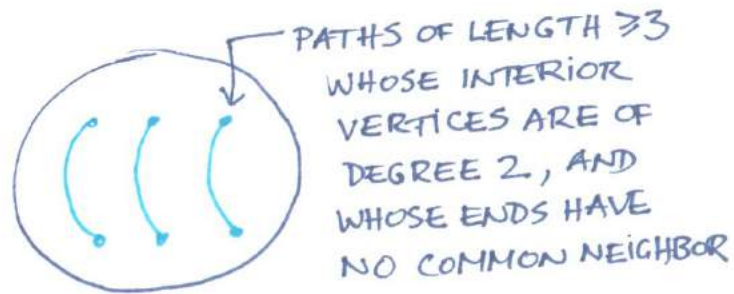 PATHS OF LENGTH ⩾3
WHOSE INTERIOR
VERTICES ARE OF
DEGREE 2, AND
WHOSE ENDS HAVE
NO COMMON NEIGHBOR